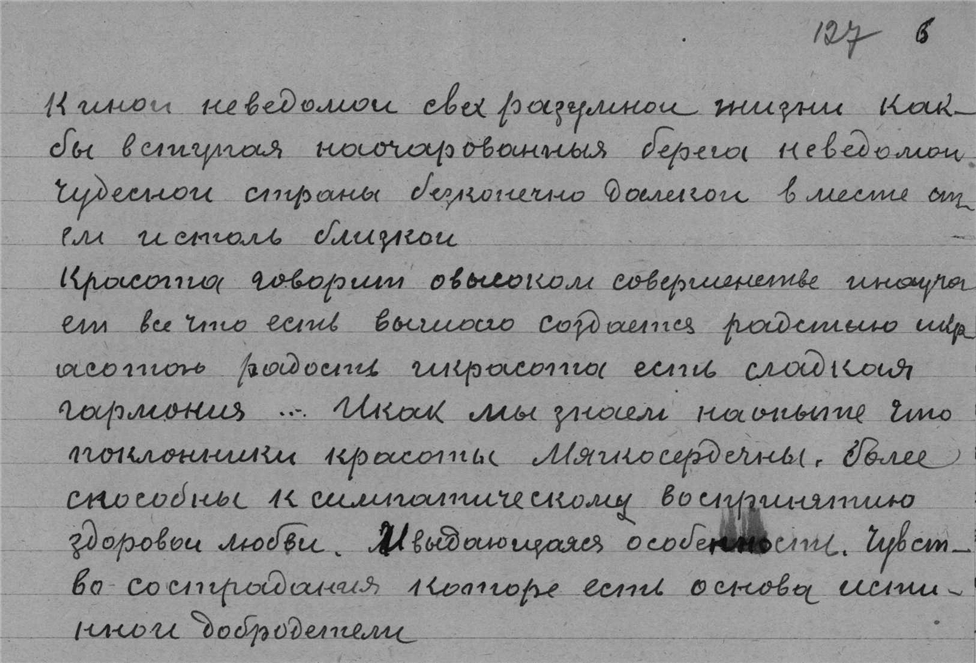 127 6
К инои неведомои сверх разумнои жизни как-
бы вступая наочарованныя берега неведомои
чудеснои страны безконечно далекои вместе ст-
ем истоль близкои
Красота говорит овысоком совершенстве инауча
ет все что есть вычиого создается радстью икр
асотою радость икрасота есть сладкая
гармония ... Икак мы знаем наопыте что
поклонники красоты Мягкосердечны. более
способны к симпатическому воспринятию
здоровои любви. Ивыдающаяся особенность. Чувст-
во сострадания которе есть основа исти-
ннои добродетели